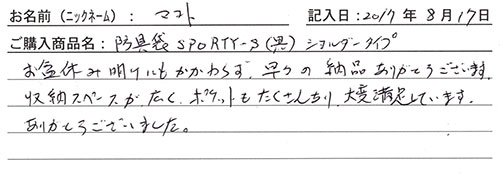 お名前（ニックネーム）： マコト 記入日：2017年 8月17日
ご購入商品名：防具袋 SPORTY-3 (黒) ショルダータイプ
お盆休み明けにもかかわらず、早々の納品ありがとうございます。
収納スペースが広く、ポケットもたくさんあり、大変満足しています。
ありがとうございました。